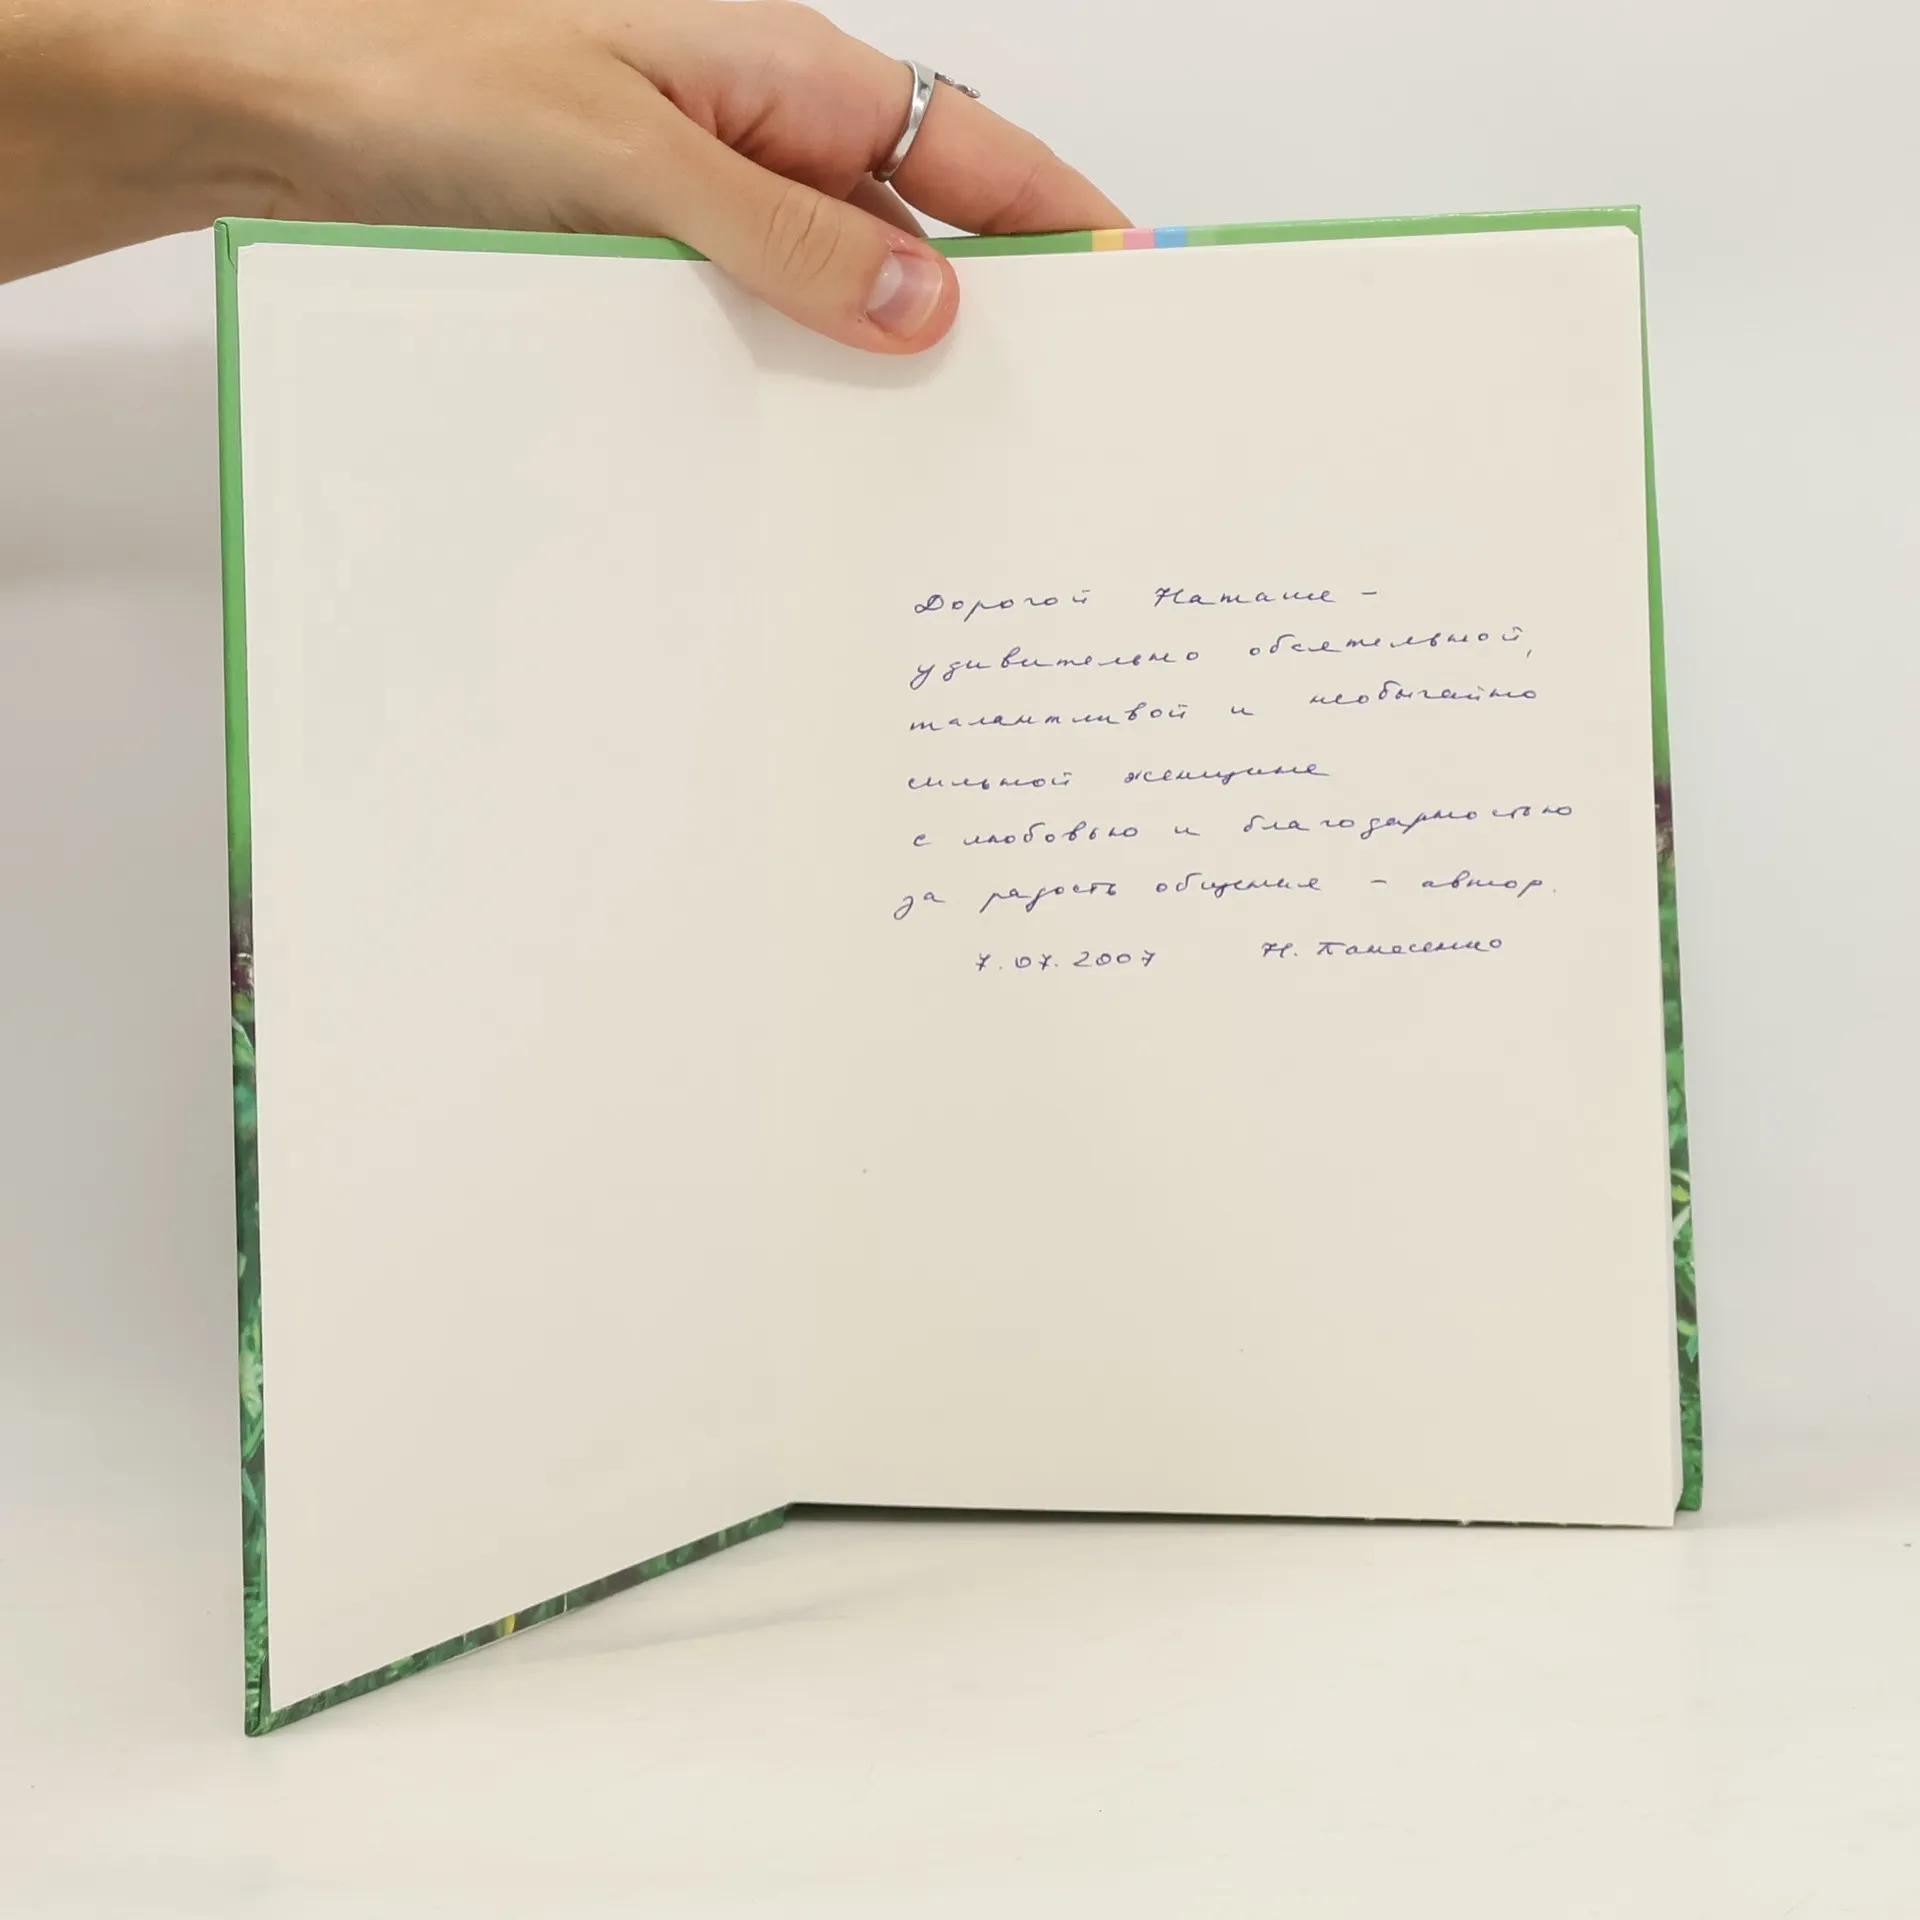 Дорогой Наташе –
удивительно обаятельной,
талантливой и необычайно
сильной женщине
с любовью и благодарностью
за радость общения – автор.
7.07.2007 Н.